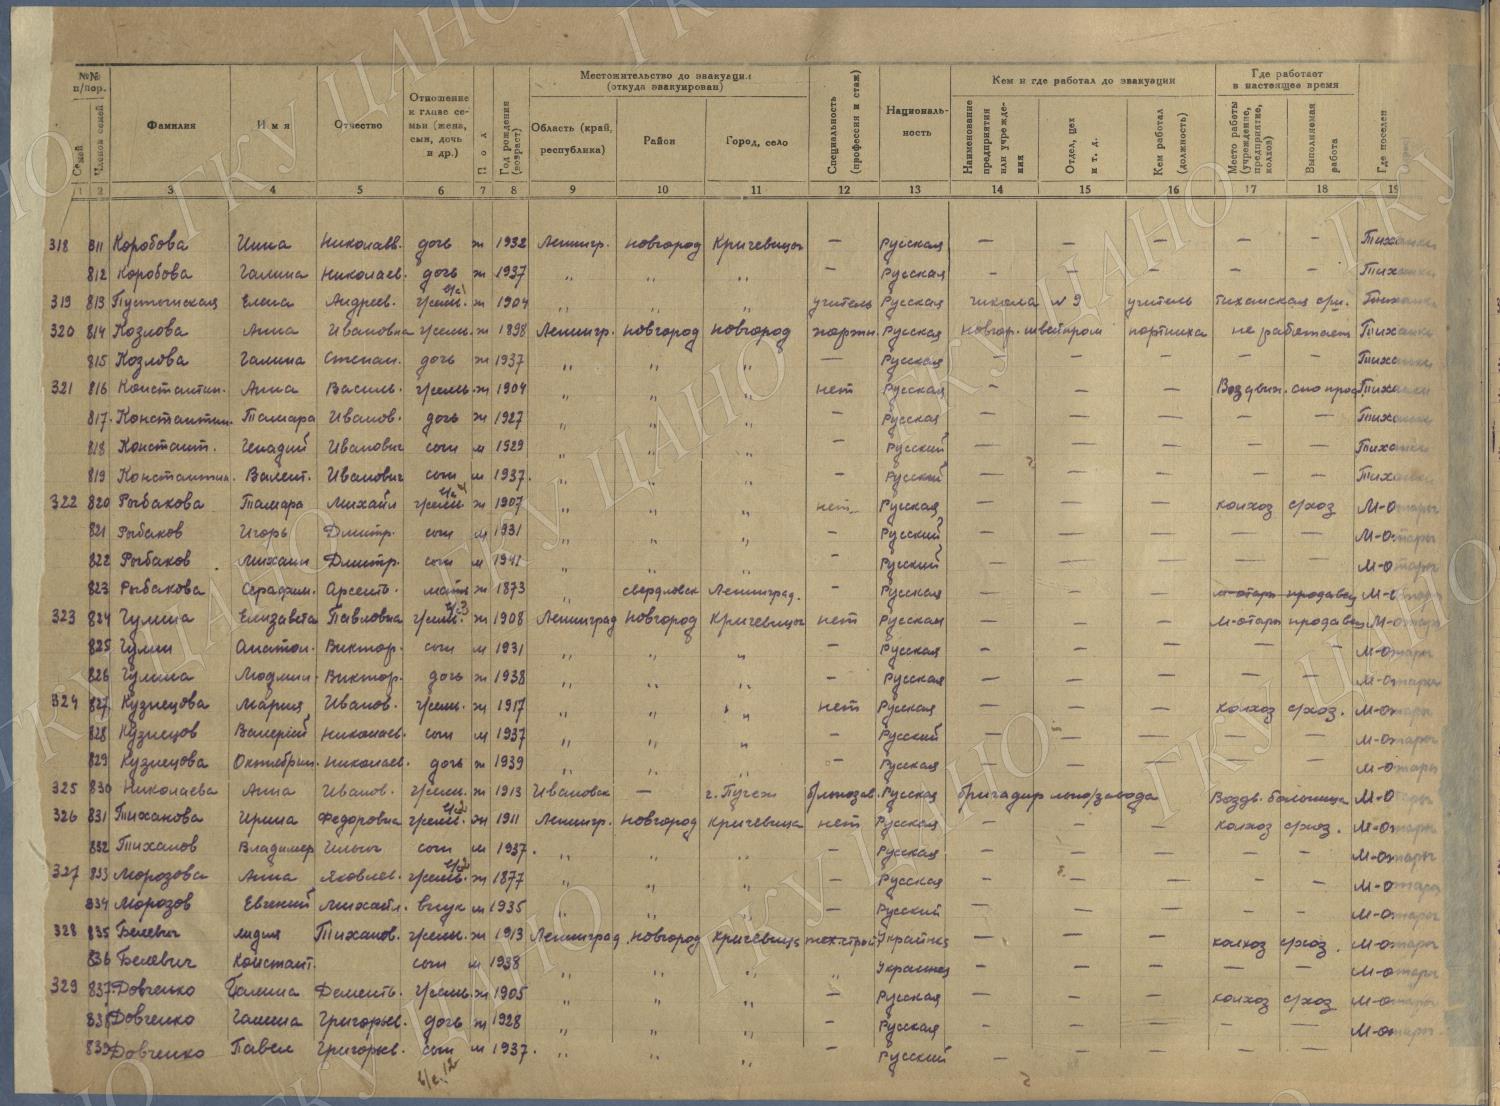 №№ п/пор. Фамилия Имя Отчество Отношение к главе семьи (жена, сын, дочь и др.) Пол Год рождения (возраст) Местожительство до эвакуации (откуда эвакуирован) Специальность (профессия и стаж) Националь-ность Кем и где работал до эвакуации Где работает в настоящее время Где поселен
Семей Членов семей Область (край, республика) Район Город, село Наименование предприятия или учреждения Отдел, цех и т. д. Кем работал (должность) Место работы (учреждение, предприятие, колхоз) Выполняемая работа
1 2 3 4 5 6 7 8 9 10 11 12 13 14 15 16 17 18 19
318 811 Коробова Инна Николаев. дочь ж 1932 Ленингр. Новгород Кричевицы — Русская — — — — — Тиханки
812 Коробова Галина Николаев. дочь ж 1937 " " " — Русская — — — — — Тиханки
319 813 Елена Андреев. г/семьи. ж 1904 " " " учитель Русская школа №9 учитель Тиханки
320 814 Козлова Анна Ивановна г/семьи. ж 1898 Ленингр. Новгород Новгород Русская Новгор. швейпром портниха не работает Тиханки
815 Козлова Галина Степан. дочь ж 1937 " " " — Русская — — — — — Тиханки
321 816 Константин. Анна Василь. г/семьи. ж 1904 " " " нет Русская — — — Воздвиж. Тиханки
817 Константин. Тамара Иванов. дочь ж 1927 " " " — Русская — — — — — Тиханки
818 Констант. Генадий Иванович сын м 1929 " " " — Русский — — — — — Тиханки
819 Константин. Валент. Иванович сын м 1937. " " " — Русский — — — — — Тиханки
322 820 Рыбакова Тамара Михайл г/семьи ж 1907 " " " нет Русская — — — колхоз с/хоз М-Отары
821 Рыбаков Игорь Дмитр. сын м 1931 " " " — Русский — — — — — М-Отары
822 Рыбаков Михаил Дмитр. сын м 1941 " " " — Русский — — — — — М-Отары
823 Рыбакова Серафим. Арсент. мать ж 1873 " свердловск Ленинград. — Русская — — — М-отары продавец М-Отары
323 824 Гулина Елизавета Павловна г/семьи. ж 1908 Ленинград Новгород Кричевицы нет Русская — — — М-отары продавец М-Отары
825 Гулин Анатол. Виктор. сын м 1931 " " " — Русская — — — — — М-Отары
826 Гулина Людмил. Виктор. дочь ж 1938 " " " — Русская — — — — — М-Отары
324 827 Кузнецова Мария Иванов. г/семьи. ж 1917 " " " нет Русская — — — колхоз с/хоз. М-Отары
828 Кузнецов Валерий Николаев. сын м 1937 " " " — Русский — — — — — М-Отары
829 Кузнецова Октябрин. Николаев. дочь ж 1939 " " " — Русская — — — — — М-Отары
325 830 Николаева Анна Иванов. г/семьи. ж 1913 Ивановск — г. Пучеж Русская бригадир льно/завода Воздв. больница М-Отары
326 831 Тиханова Ирина Федоровна г/семьи. ж 1911 Ленингр. Новгород Кричевица нет Русская — — — колхоз с/хоз. М-Отары
832 Тиханов Владимер Ильич сын м 1937. " " " — Русская — — — — — М-Отары
327 833 Морозова Анна Яковлев. г/семьи. ж 1877 " " " — Русская — — — — — М-Отары
834 Морозов Евгений Михайл. внук м 1935 " " " — Русский — — — — — М-Отары
328 835 Белевич Лидия Тиханов. г/семьи. ж 1913 Ленинград. Новгород Кричевица Украинка — — — колхоз с/хоз. М-Отары
836 Белевич Констант. сын м 1938 " " " " Украинец — — — — — М-Отары
329 837 Довченко Галина Дементь. г/семьи. ж 1905 " " " — Русская — — — колхоз с/хоз М-Отары
838 Довченко Галина Григорьев. дочь ж 1928 " " " — Русская — — — — — М-Отары
839 Довченко Павел Григорьев. сын м 1937. " " " — Русский — — — — —
в/с. 12
ГКУ ЦАНО